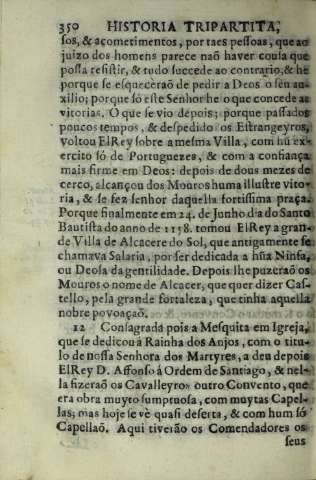 350 HISTORIA TRIPARTITA,
sos, & açometimentos, por taes pessoas, que ao
juizo dos homens parece naõ haver cousa que
possa resistir, & tudo succede ao contrario, & he
porque se esquecerаõ de pedir a Deos o seu au-
xilio; porque só este Senhor he o que concede as
vitorias. O que se vio depois; porque passados
poucos tempos, & despedido os Estrangeyros,
voltou ElRey sobre a mesma Villa, com hũ ex-
ercito só de Portuguezes, & com a confiança
mais firme em Deos: depois de dous mezes de
cerco, alcançou dos Mouros huma illustre vito-
ria, & se fez senhor daquella fortissima praça.
Porque finalmente em 24. de Junho dia do Santo
Bautista do anno de 1158. tomou ElRey a gran-
de Villa de Alcacere do Sol, que antigamente se
chamava Salaria, por ser dedicada a hũa Ninfa,
ou Deosa da gentilidade. Depois lhe puzeraõ os
Mouros o nome de Alcacer, que quer dizer Cas-
tello, pela grande fortaleza, que tinha aquella
nobre povoaçaõ.
12 Consagrada pois a Mesquita em Igreja,
que se dedicou á Rainha dos Anjos, com o titu-
lo de nossa Senhora dos Martyres, a deu depois
ElRey D. Affonso á Ordem de Santiago, & nel-
la fizeraõ os Cavalleyros outro Convento, que
era obra muyto sumptuosa, com muytas Capel-
las; mas hoje se vè quasi deserta, & com hum só
Capellaõ. Aqui tiveraõ os Comendadores os
seus